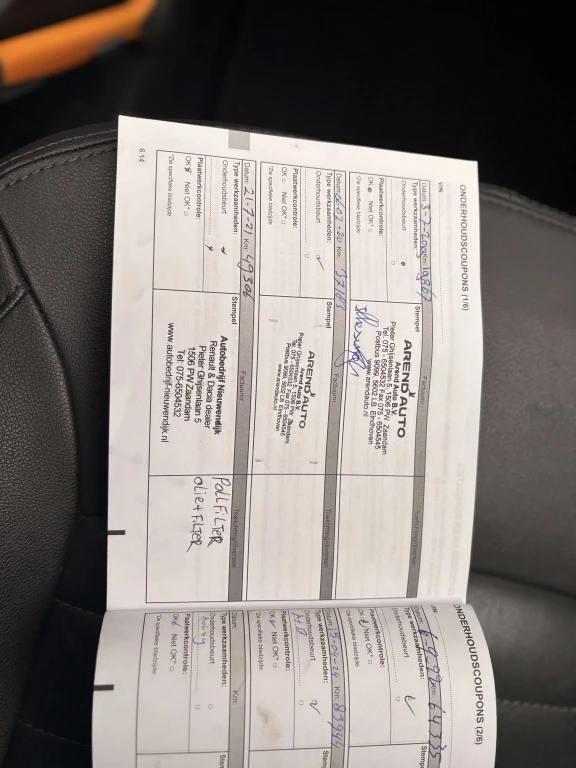 ONDERHOUDSCOUPONS (1/6)
VIN:
Datum: Km:
Type werkzaamheden:
Onderhoudsbeurt
Plaatwerkcontrole:
OK Niet OK*
*De specifieke bladzijde
Stempel
Factuurnr.:
ARENDAUTO
Arend Auto B.V.
Pieter Ghijsenlaan 5, 1506 PW Zaandam
Tel. 075 - 6504532 Fax 075 - 6504545
Postbus 9099, 5602 LB Eindhoven
www.arendauto.nl
Datum: Km:
Type werkzaamheden:
Onderhoudsbeurt
Plaatwerkcontrole:
OK Niet OK*
*De specifieke bladzijde
Stempel
Factuurnr.:
ARENDAUTO
Arend Auto B.V.
Pieter Ghijsenlaan 5, 1506 PW Zaandam
Tel. 075 - 6504532 Fax 075 - 6504545
Postbus 9099, 5602 LB Eindhoven
www.arendauto.nl
Datum: 21-7-21 Km: 49306
Type werkzaamheden:
Onderhoudsbeurt
Plaatwerkcontrole:
OK Niet OK*
*De specifieke bladzijde
Stempel
Factuurnr.:
Autobedrijf Nieuwendijk
Renault & Dacia dealer
Pieter Ghijsenlaan 5
1506 PW Zaandam
Tel: 075-6504532
www.autobedrijf-nieuwendijk.nl
POLLFILTER
OLIE+FILTER
6.14
ONDERHOUDSCOUPONS (2/6)
VIN:
Datum: Km: 64335
Type werkzaamheden:
Onderhoudsbeurt
Plaatwerkcontrole:
OK Niet OK*
*De specifieke bladzijde
Datum: Km: 83944
Type werkzaamheden:
Onderhoudsbeurt
Plaatwerkcontrole:
OK Niet OK*
*De specifieke bladzijde
Stempel
Datum: Km:
Type werkzaamheden:
Onderhoudsbeurt
Plaatwerkcontrole:
OK Niet OK*
*De specifieke bladzijde
Stempel